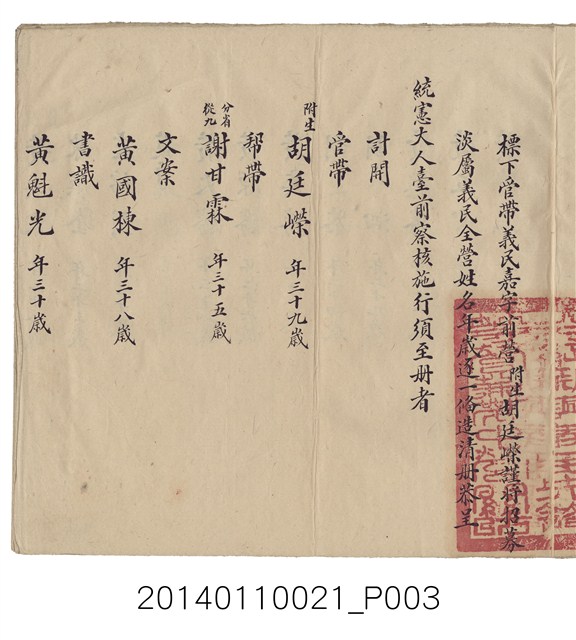 標下管帶義民嘉字前營附生胡廷嶸謹將招募
淡屬義民全營姓名年歲逐一條造清册恭呈
統憲大人臺前察核施行須至册者
計開
管帶
附生胡廷嶸 年三十九歲
幫帶
分省從九謝甘霖 年三十五歲
文案
黃國棟 年三十八歲
書識
黃魁光 年三十歲
20140110021_P003